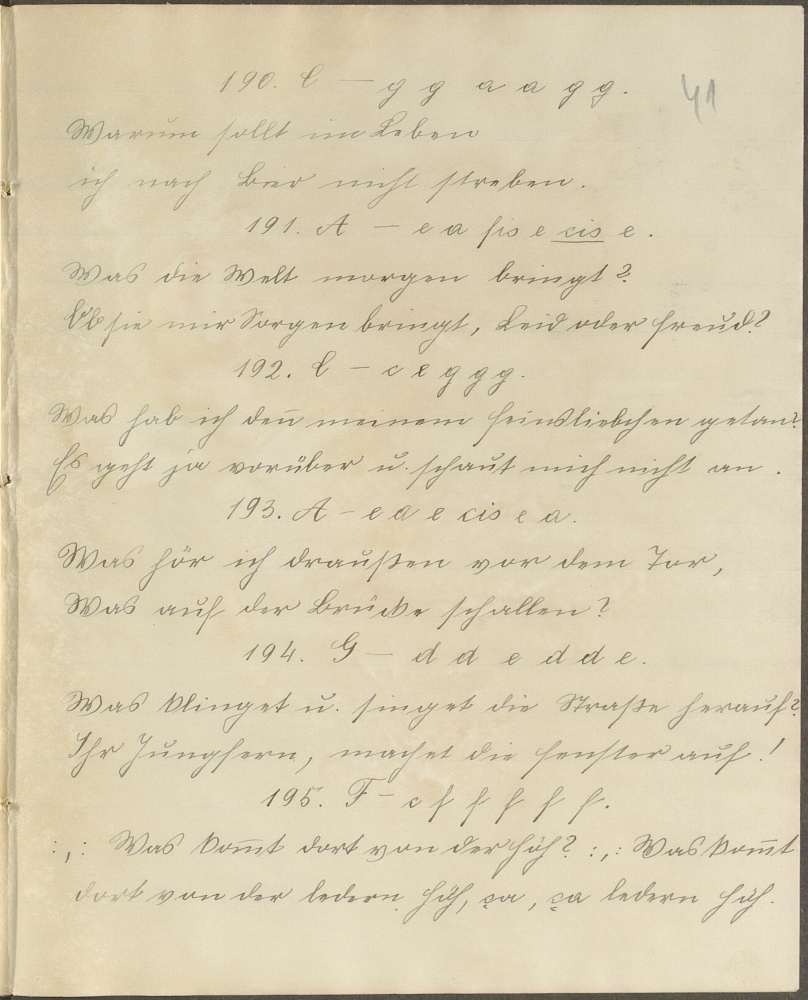 190. C — g g a a g g.
41
Warum sollt im Leben
ich nach Bier nicht streben.
191. A — e a fis e cis e.
Was die Welt morgen bringt?
Ob sie mir Sorgen bringt, Leid oder Freud?
192. C — c e g g g.
Was hab ich deñ meinem Feinsliebchen getan?
Es geht ja vorüber u. schaut mich nicht an.
193. A — e a e cis e a.
Was hör ich draußen vor dem Tor,
Was auf der Brücke schallen?
194. G — d d e d d e.
Was klinget u. singet die Straße herauf?
Ihr Jungfern, machet die Fenster auf!
195. F — c f f f f f.
:,: Was kom̄t dort von der Höh? :,: Was kom̄t
dort von der ledern Höh, ça, ça ledern Höh.